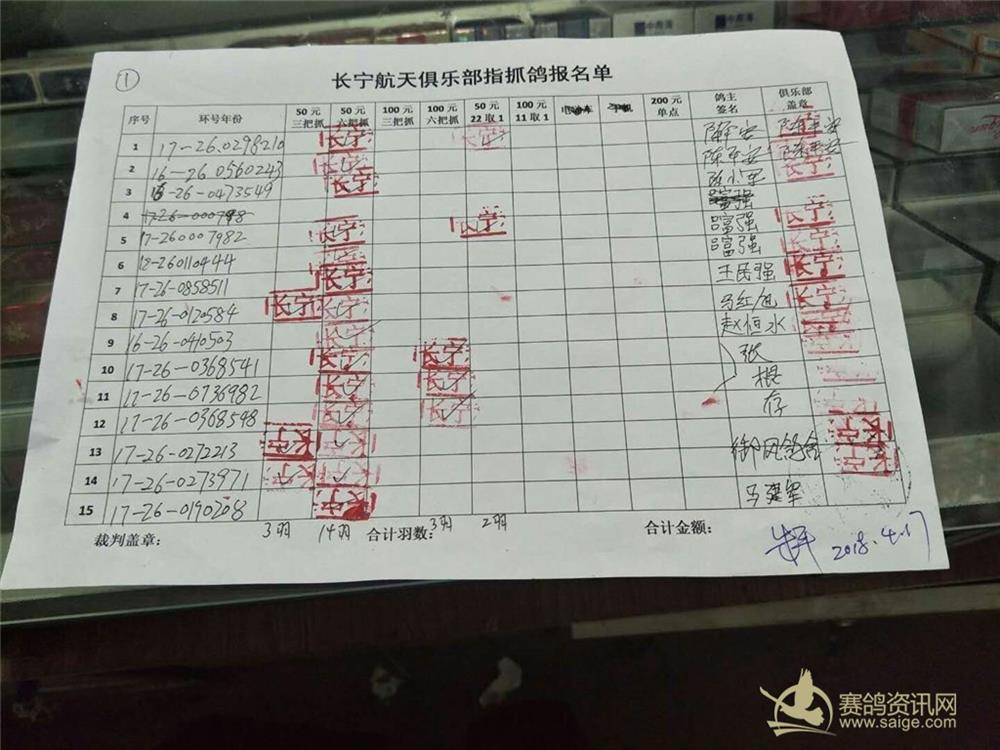 中南海
①
长宁航天俱乐部指抓鸽报名单
序号 环号年份 50元三把抓 50元六把抓 100元三把抓 100元六把抓 50元22取1 100元11取1 200元单点 鸽主签名 俱乐部盖章
1 17-26.0298210 长宁 长宁 陈平安 陈平安
2 16-26 0560243 长宁 陈平安 陈平安
3 16-26-0473549 长宁 长宁
4 17-26-0007948 吕富强
5 17-260007982 长宁 长宁 吕富强 长宁
6 12-260110444 吕富强 长宁
7 17-26-0858511 长宁 王民强 长宁
8 17-26-0120584 长宁 长宁 马红旭 长宁
9 16-26-0410503 长宁 赵恒水
10 17-26-0368541 长宁 长宁 张
11 17-26-0736982 长宁 长宁 根
12 17-26-0368548 长宁 长宁 存
13 17-26-0272213 长宁 长宁 御风鸽舍 长宁
14 17-26-0273971 长宁 长宁 长宁
15 17-26-0190208 长宁 马建军
裁判盖章: 3羽 14羽 合计羽数: 3羽 2羽 合计金额:
2018.4.17
赛鸽资讯网
www.saige.com